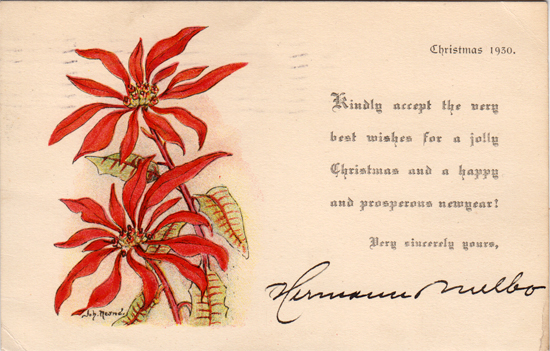 Christmas 1930.
Kindly accept the very
best wishes for a jolly
Christmas and a happy
and prosperous newyear!
Very sincerely yours,
Hermann
Joh.